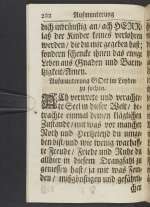 262 Auffmunterung
dich inbrünstig an / ach HERR
laß der Kinder keines verlohren
werden / die du mir gegeben hast;
sondern schencke ihnen das ewige
Leben aus Gnaden und Barm-
hertzigkeit / Amen.
Auffmunterung GOtt im Leyden
zu
ACh verirrete und verachte-
te Seel in dieser Welt / be-
trachte einmal deinen kläglichen
Zustande / mit was vor mancher
Noth und du umbge-
ben bist / und wie wenig warhaff-
te Freude / Friede und Ruhe du
allhier in diesem Drangsahl
genossen hast / ja mit was Fein-
den / mißgünstigen und